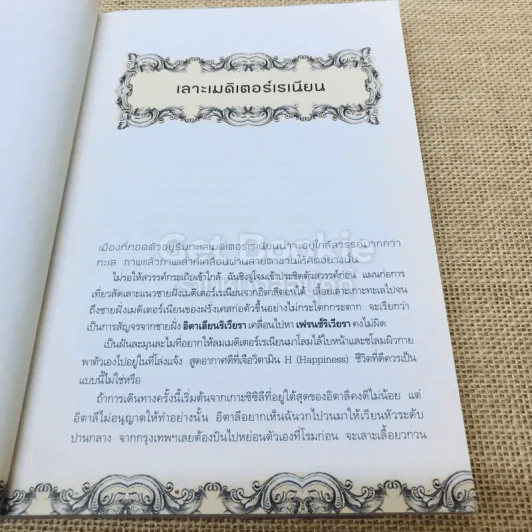 เลาะเมดิเตอร์เรเนียน
เมืองที่ทอดตัวอยู่ริมทะเลเมดิเตอร์เรเนียนน่าจะอยู่ใกล้สวรรค์มากกว่า
ทะเล ภาพแล้วภาพเล่าที่เคลื่อนผ่านสายตาชวนให้คิดอย่างนั้น
ไม่รอให้สวรรค์กระเถิบเข้าใกล้ ฉันชิงจู่โจมเข้าประชิดตัวสวรรค์ก่อน แผนก่อการ
เที่ยวลัดเลาะแนวชายฝั่งเมดิเตอร์เรเนียนจากอิตาลีตอนใต้ เลื้อยเลาะเกาะทะเลไปจน
ถึงชายฝั่งเมดิเตอร์เรเนียนของฝรั่งเศสก่อตัวขึ้นอย่างไม่กระโตกกระตาก จะเรียกว่า
เป็นการสัญจรจากชายฝั่ง อิตาเลียนริเวียรา เคลื่อนไปหา เฟรนช์ริเวียรา คงไม่ผิด
เป็นฝันละมุนละไมที่อยากให้ลมเมดิเตอร์เรเนียนมาโลมไล้ใบหน้าและชโลมผิวกาย
พาตัวเองไปอยู่ในที่โล่งแจ้ง สูดอากาศดีที่เจือวิตามิน H (Happiness) ชีวิตที่ดีควรเป็น
แบบนี้ไม่ใช่หรือ
ถ้าการเดินทางครั้งนี้เริ่มต้นจากเกาะซิซิลีที่อยู่ใต้สุดของอิตาลีคงดีไม่น้อย แต่
อิตาลีไม่อนุญาตให้ทำอย่างนั้น อิตาลีอยากเห็นฉันวกไปวนมาให้เวียนหัวระดับ
ปานกลาง จากกรุงเทพฯ เลยต้องบินไปหย่อนตัวเองที่โรมก่อน จะเลาะเลื้อยวกวน
GetBookie